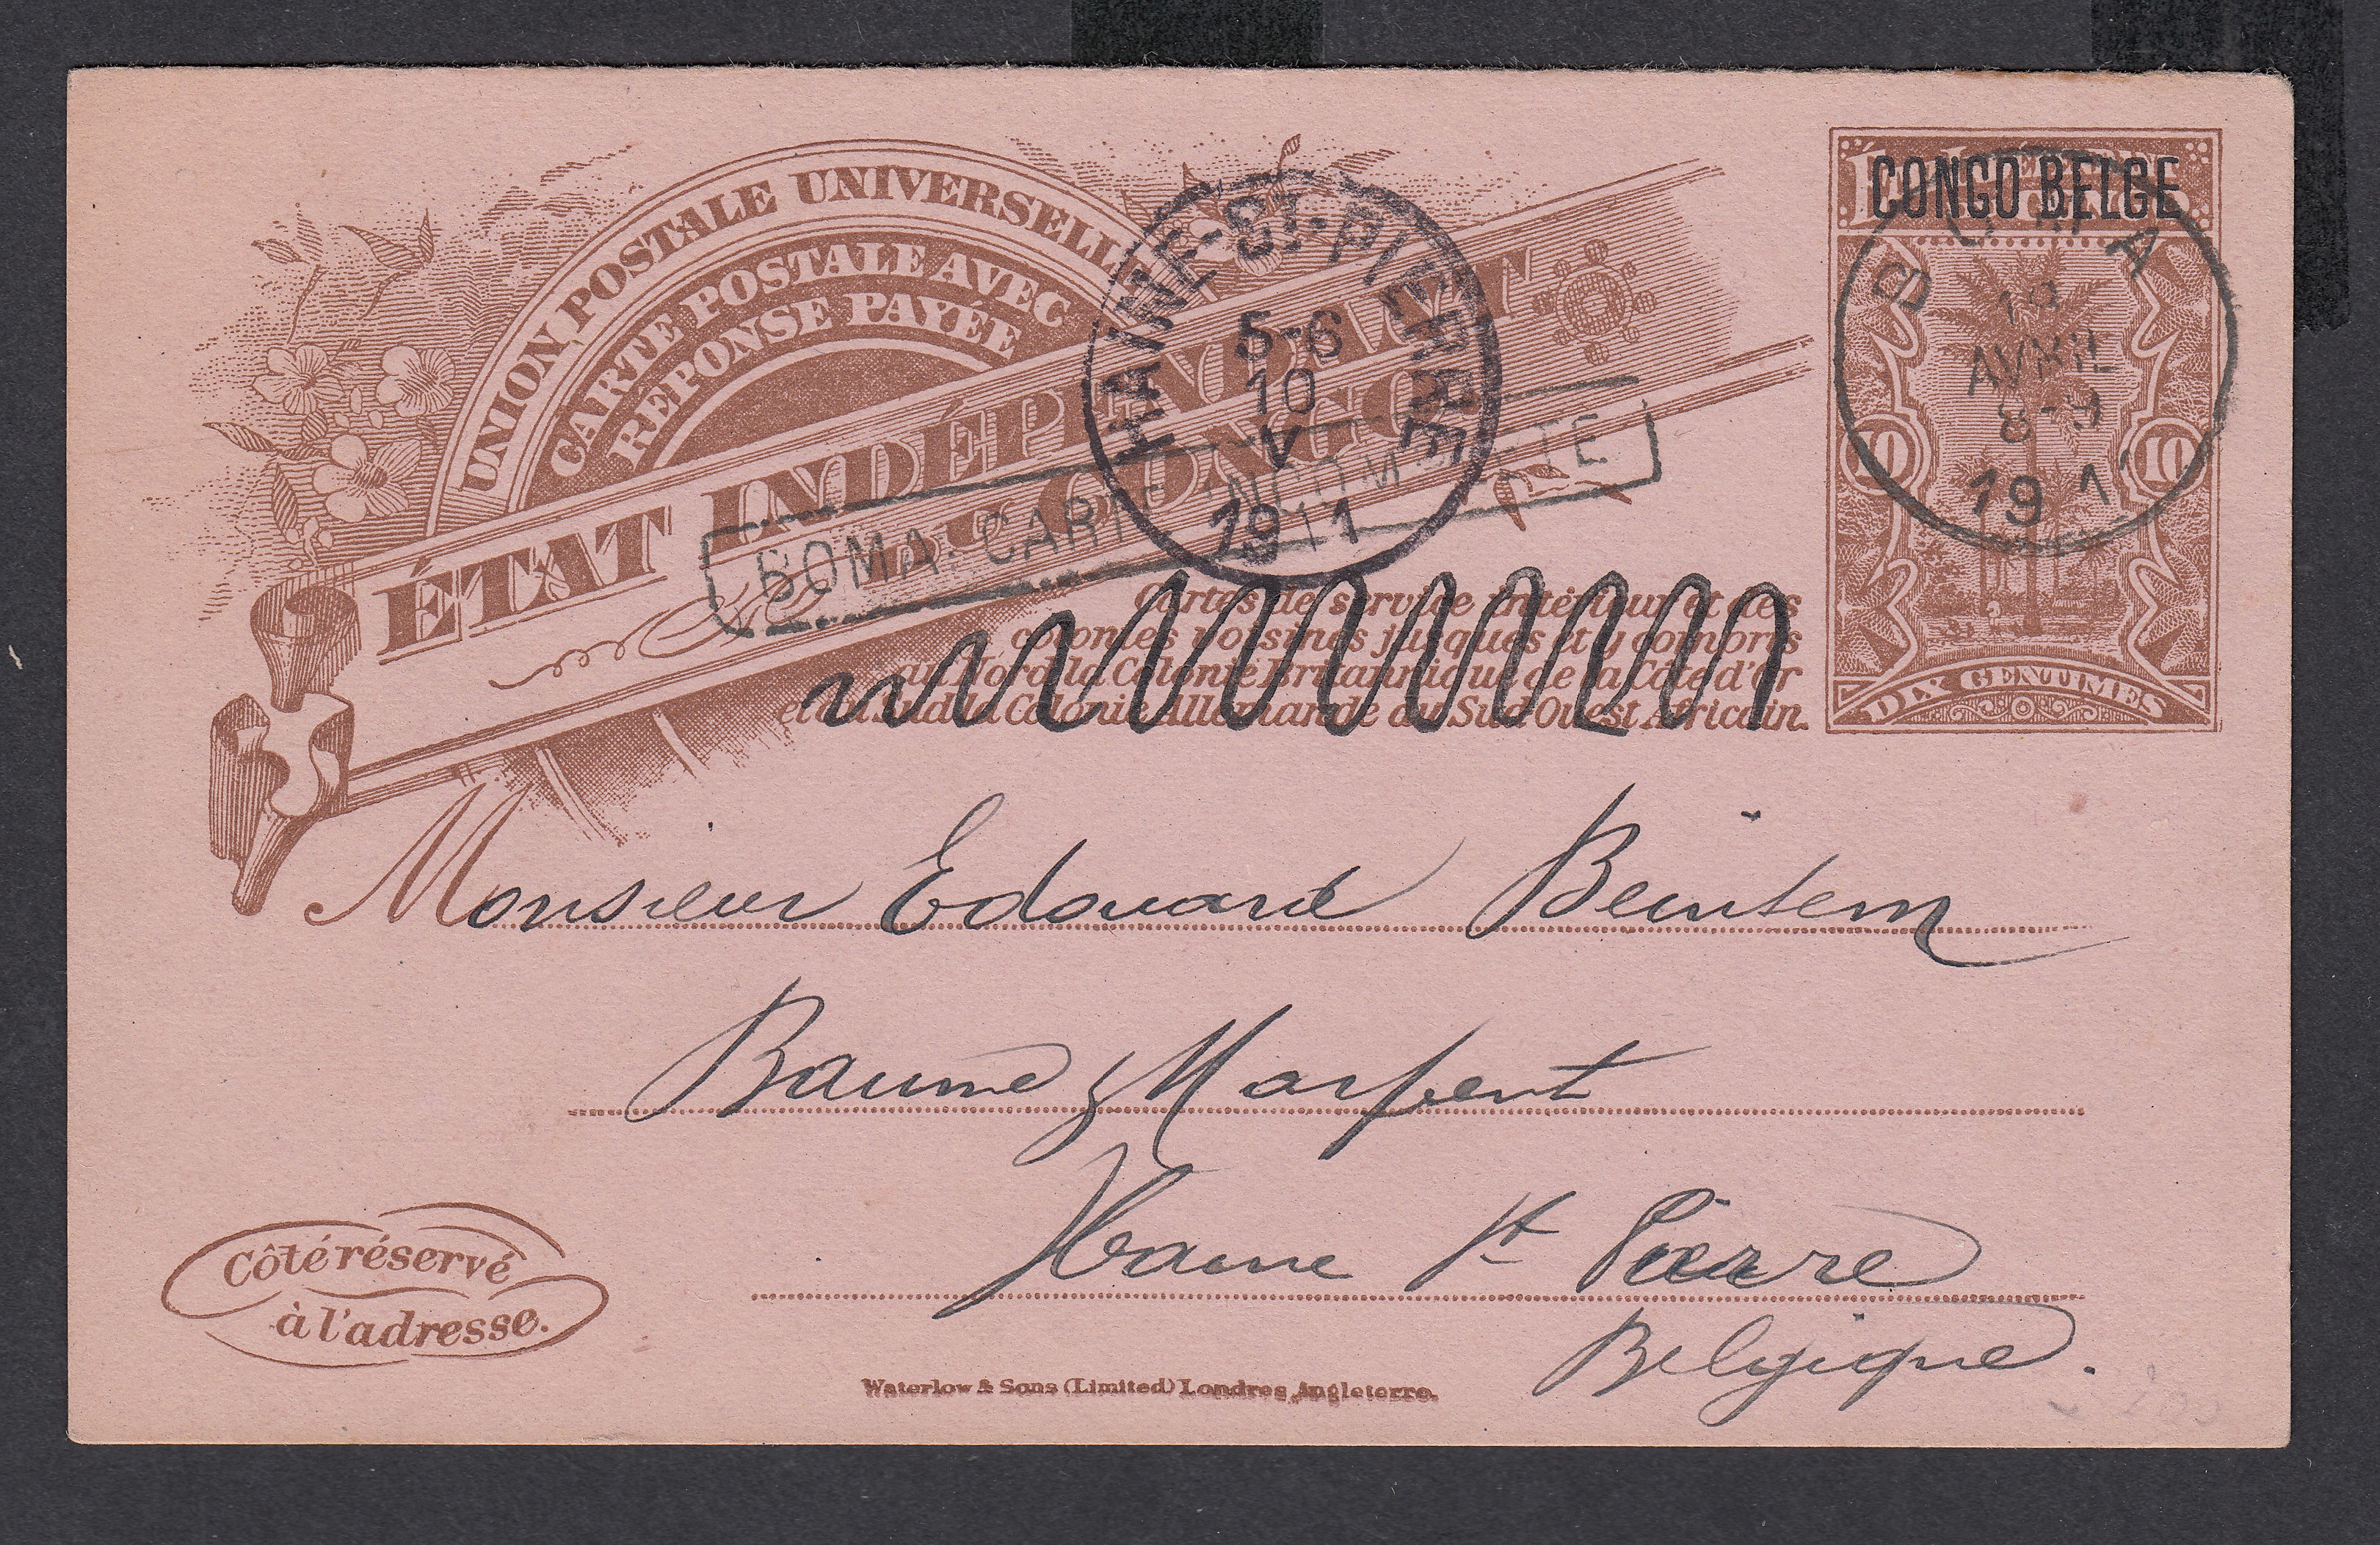 UNION POSTALE UNIVERSELLE
CARTE POSTALE AVEC
RÉPONSE PAYÉE
ÉTAT INDÉPENDANT
DU CONGO
CONGO BELGE
BOMA
AVRIL
8-9
10 10
DIX CENTIMES
HAINE-ST-PIERRE
5-6
10
V
1911
BOMA-CARTE INCOMPLETE
Cartes de service intérieur et des
colonies voisines jusques et y compris
au Nord la Colonie Britannique de la Côte d'Or
et au Sud la Colonie Allemande du Sud Ouest Africain.
Monsieur Edouard
Baume & Marpent
Haine St Pierre
Belgique.
Côté réservé
à l'adresse.
Waterlow & Sons (Limited) Londres, Angleterre.